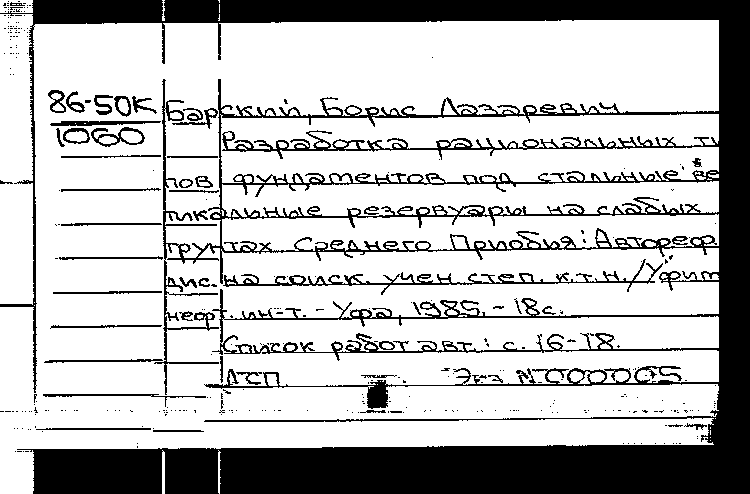 86-50К
1060
Барский, Борис Лазаревич
Разработка рациональных ти
пов фундаментов под стальные ве
тикальные резервуары на слабых
грунтах Среднего Приобья: Автореф.
дис. на соиск. учен. степ. к.т.н. / Уфим
нефт. ин-т. - Уфа, 1985. - 18с.
Список работ авт.: с. 16-18.
ДСП Экз N000005